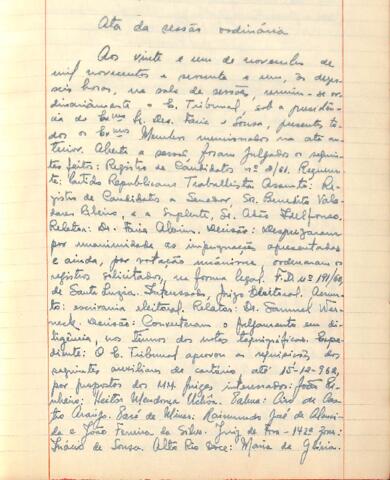 Ata da sessão ordinária
Aos vinte e um de novembro de
mil novecentos e sessenta e um, às dezes-
seis horas, na sala de sessões, reuniu-se or-
dinariamente o E. Tribunal, sob a presidên-
cia do Exmo Sr. Des. Faria e Sousa, presentes to-
dos os Exmos Membros mencionados na ata an-
terior. Aberta a sessão foram julgados os seguin-
tes feitos: Registro de Candidatos nº 2/61. Requeren-
te: Partido Republicano Trabalhista. Assunto: Re-
gistro de Candidatos a Senador, Sr. Benedito Vala-
dares Ribeiro, e a Suplente, Sr.
Relator: Dr. Faria Alvim. Decisão: Desprezaram
por unanimidade as impugnações apresentadas
e ainda, por votação unânime, ordenaram os
registros solicitados, na forma legal. F.D. nº 191/60,
de Santa Luzia. Interessado, Juízo Eleitoral. Assun-
to: escrivania eleitoral. Relator: Dr. Samuel Wer-
neck. Decisão: Converteram o julgamento em di-
ligência, nos termos das notas taquigráficas. Expe-
diente: O E. Tribunal aprovou as requisições dos
seguintes auxiliares de cartório até 15-12-962,
por propostas dos MM. Juízes interessados: João Pi-
nheiro: Heitor Mendonça Uchôa. de Cas-
tro Araújo. Pará de Minas: Raimundo José de Almei-
da e João Ferreira da Silva. Juiz de Fora - 142ª Zona:
de Sousa. Alto Rio Doce: Maria da Glória